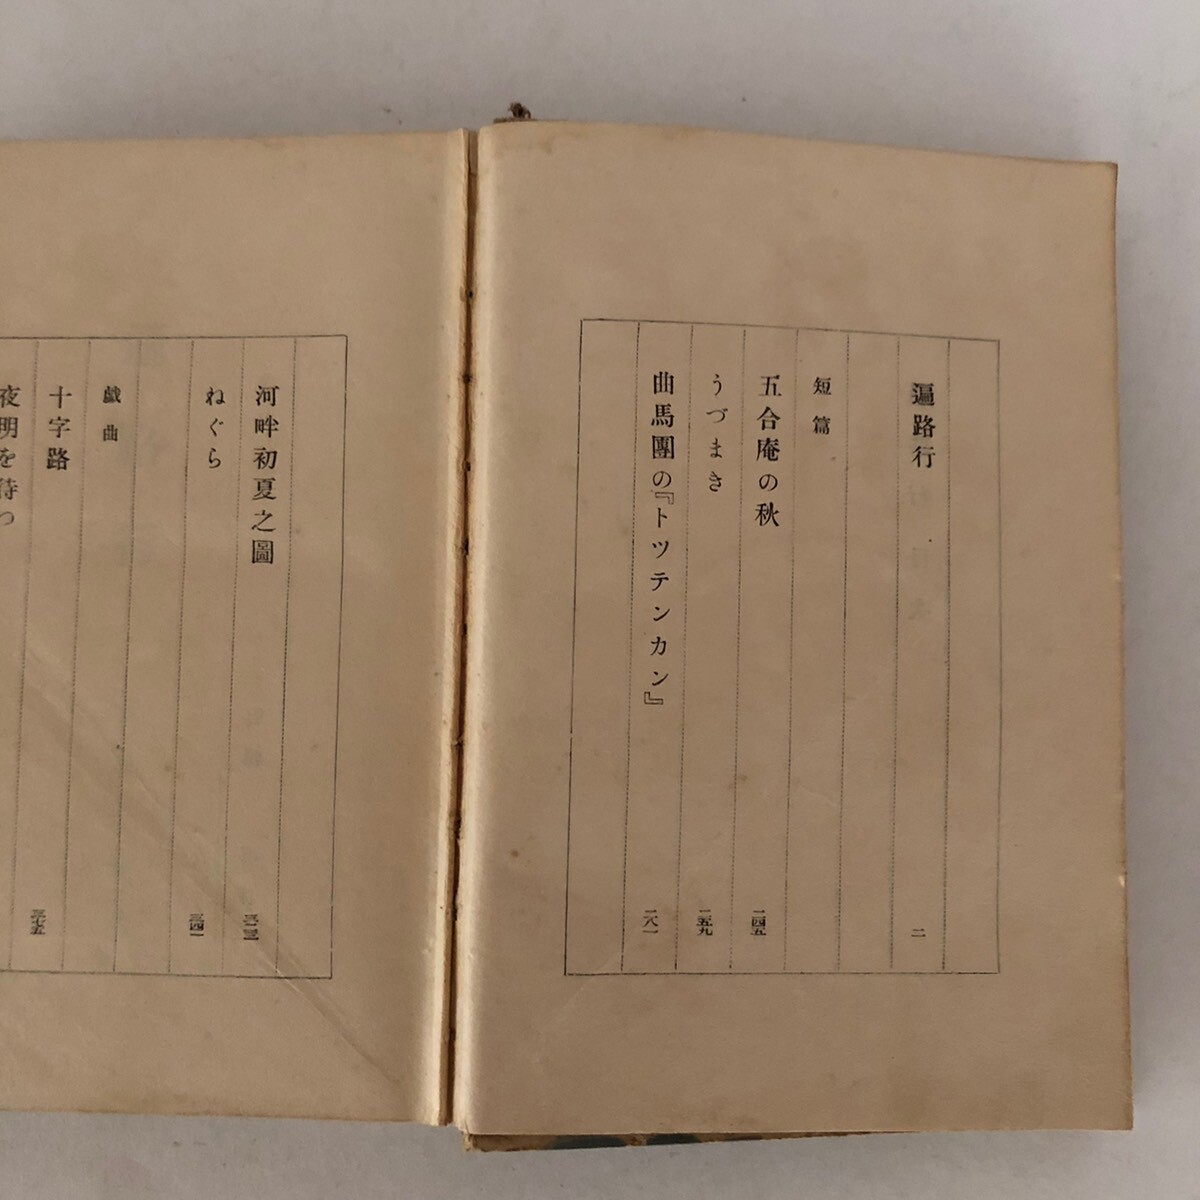 遍路行 二
短篇
五合庵の秋 二四五
うづまき 二五九
曲馬團の『トツテンカン』 二八一
河畔初夏之圖 三一三
ねぐら 三四一
戯曲
十字路 三七五
夜明を待つ